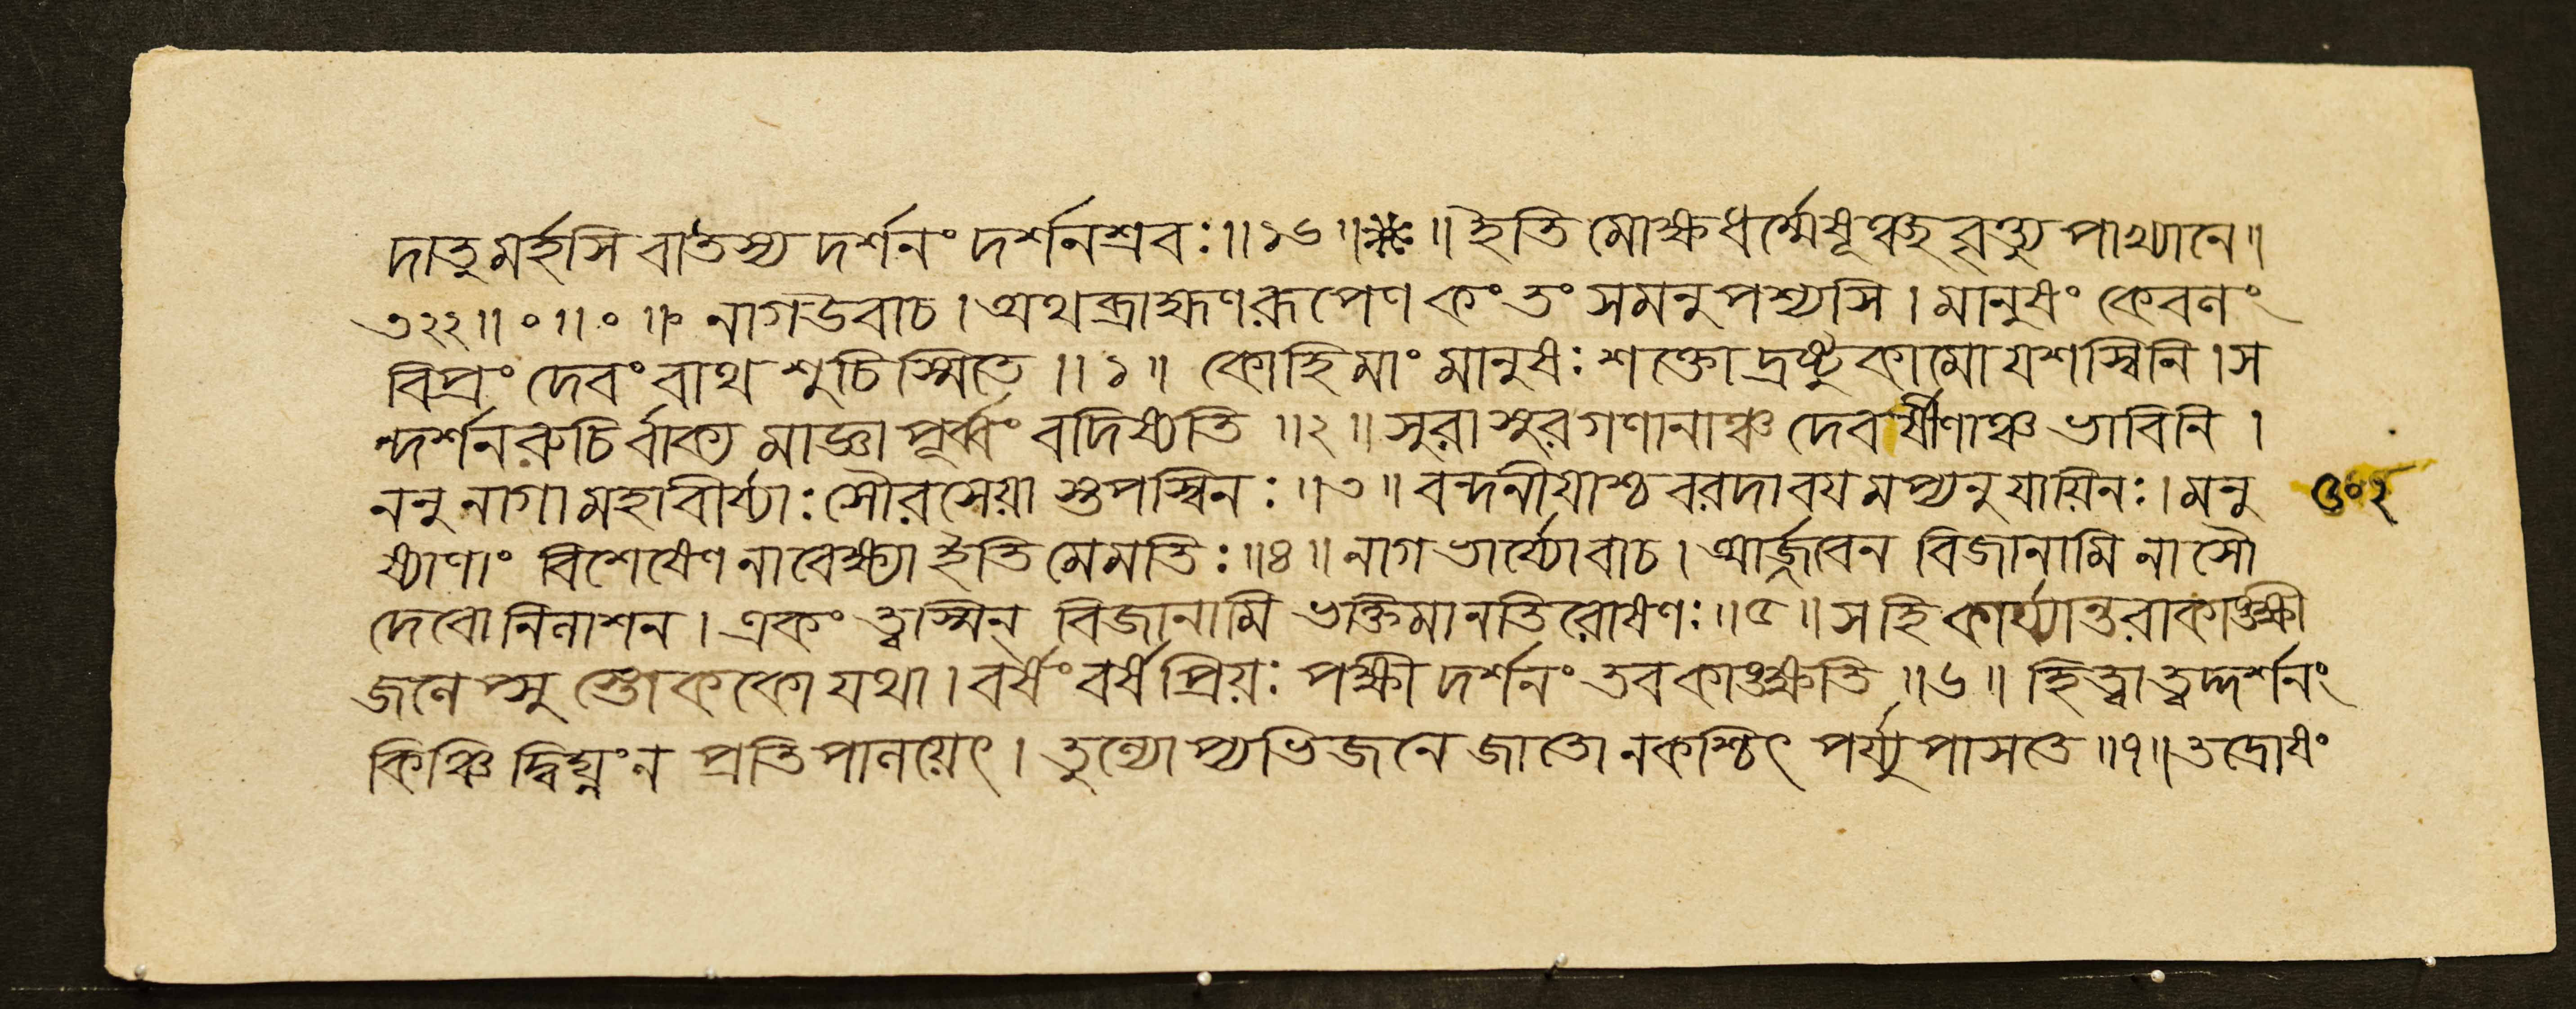 দাতুমর্হসি বা তস্য দর্শনং দর্শনশ্রবঃ॥১৬॥※॥ইতি মোক্ষধর্ম্মেষূঞ্ছবৃত্ত্যুপাখ্যানে॥
৩২২॥০॥০॥ নাগউবাচ।অথ ব্রাহ্মণরূপেণ কং তং সমনুপশ্যসি।মানুষং কেবলং
বিপ্রং দেবং বাথ শুচিস্মিতে॥১॥ কোহি মাং মানুষঃ শক্তো দ্রষ্টুকামো যশস্বিনি।স
ন্দর্শনরুচির্বাক্য মাজ্ঞাপূর্ব্বং বদিষ্যতি॥২॥সুরাসুরগণানাঞ্চ দেবর্ষীণাঞ্চ ভাবিনি।
ননু নাগা মহাবীর্য্যাঃ সৌরসেয়া স্তপস্বিনঃ॥৩॥বন্দনীয়াশ্চ বরদা বয়মপ্যনুযায়িনঃ।মনু ৩০২
ষ্যাণাং বিশেষেণ নাবেক্ষ্যা ইতি মে মতিঃ॥৪॥নাগভার্য্যোবাচ।আর্জ্জবেন বিজানামি নাসৌ
দেবোনিলাশন।একং ত্বস্মিন্ বিজানামি ভক্তিমানতিরোষণঃ॥৫॥স হি কার্য্যান্তরাকাঙ্ক্ষী
জলেপ্সু স্তোককো যথা।বর্ষং বর্ষপ্রিয়ঃ পক্ষী দর্শনং তব কাঙ্ক্ষতি॥৬॥হিত্বা ত্বদ্দর্শনং
কিঞ্চিদ্বিঘ্নং ন প্রতিপালয়েৎ।তুল্যোপ্যভিজনে জাতো ন কশ্চিৎ পর্য্যুপাসতে॥৭॥তদ্রোষং